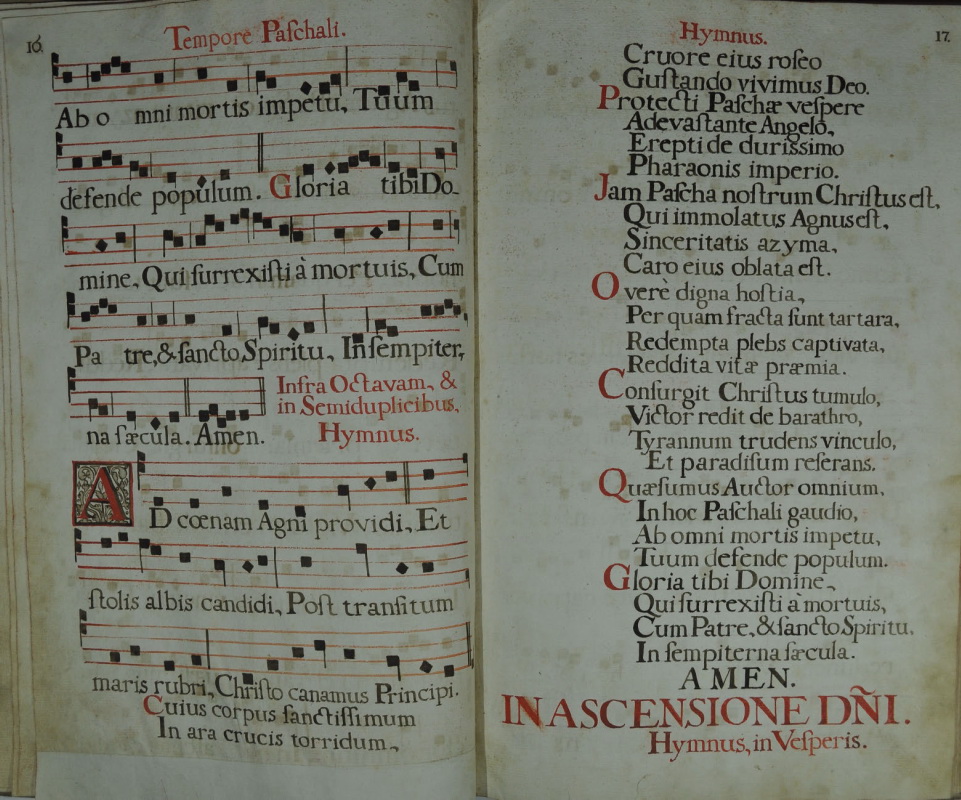 16.
Tempore Paſchali.
Ab o mni mortis impetu, Tuum
defende populum. Gloria tibi Do-
mine, Qui ſurrexiſti à mortuis, Cum
Pa tre, & ſancto Spiritu, In ſempiter,
na ſæcula. Amen.
Infra Octavam, &
in Semiduplicibus,
Hymnus.
AD cœnam Agni providi, Et
ſtolis albis candidi, Poſt tranſitum
maris rubri, Chriſto canamus Principi.
Cuius corpus ſanctiſſimum
In ara crucis torridum,
17.
Hymnus.
Cruore eius roſeo
Guſtando vivimus Deo.
Protecti Paſchæ veſpere
A devaſtante Angelo,
Erepti de duriſsimo
Pharaonis imperio.
Jam Paſcha noſtrum Chriſtus eſt,
Qui immolatus Agnus eſt,
Sinceritatis azyma,
Caro eius oblata eſt.
O verè digna hoſtia,
Per quam fracta ſunt tartara,
Redempta plebs captivata,
Reddita vitæ præmia.
Conſurgit Chriſtus tumulo,
Victor redit de barathro,
Tyrannum trudens vinculo,
Et paradiſum reſerans.
Quæſumus Auctor omnium,
In hoc Paſchali gaudio,
Ab omni mortis impetu,
Tuum defende populum.
Gloria tibi Domine,
Qui ſurrexiſti à mortuis,
Cum Patre, & ſancto Spiritu,
In ſempiterna ſæcula.
AMEN.
IN ASCENSIONE DÑI.
Hymnus, in Veſperis.